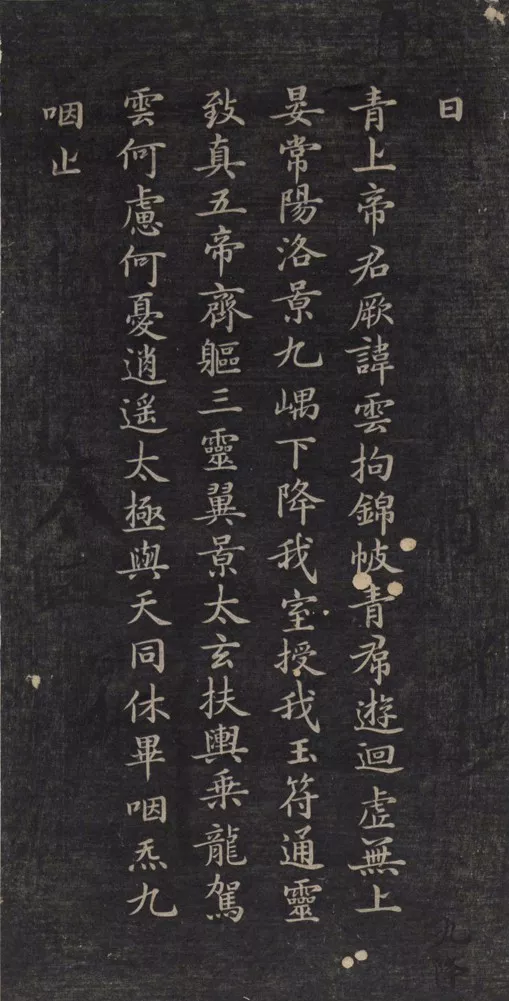 曰
青上帝君厥諱雲拘錦帔青帬遊迴虛無上
晏常陽洛景九嵎下降我室授我玉符通靈
致真五帝齊軀三靈翼景太玄扶輿乘龍駕
雲何慮何憂逍遙太極與天同休畢咽炁九
咽止